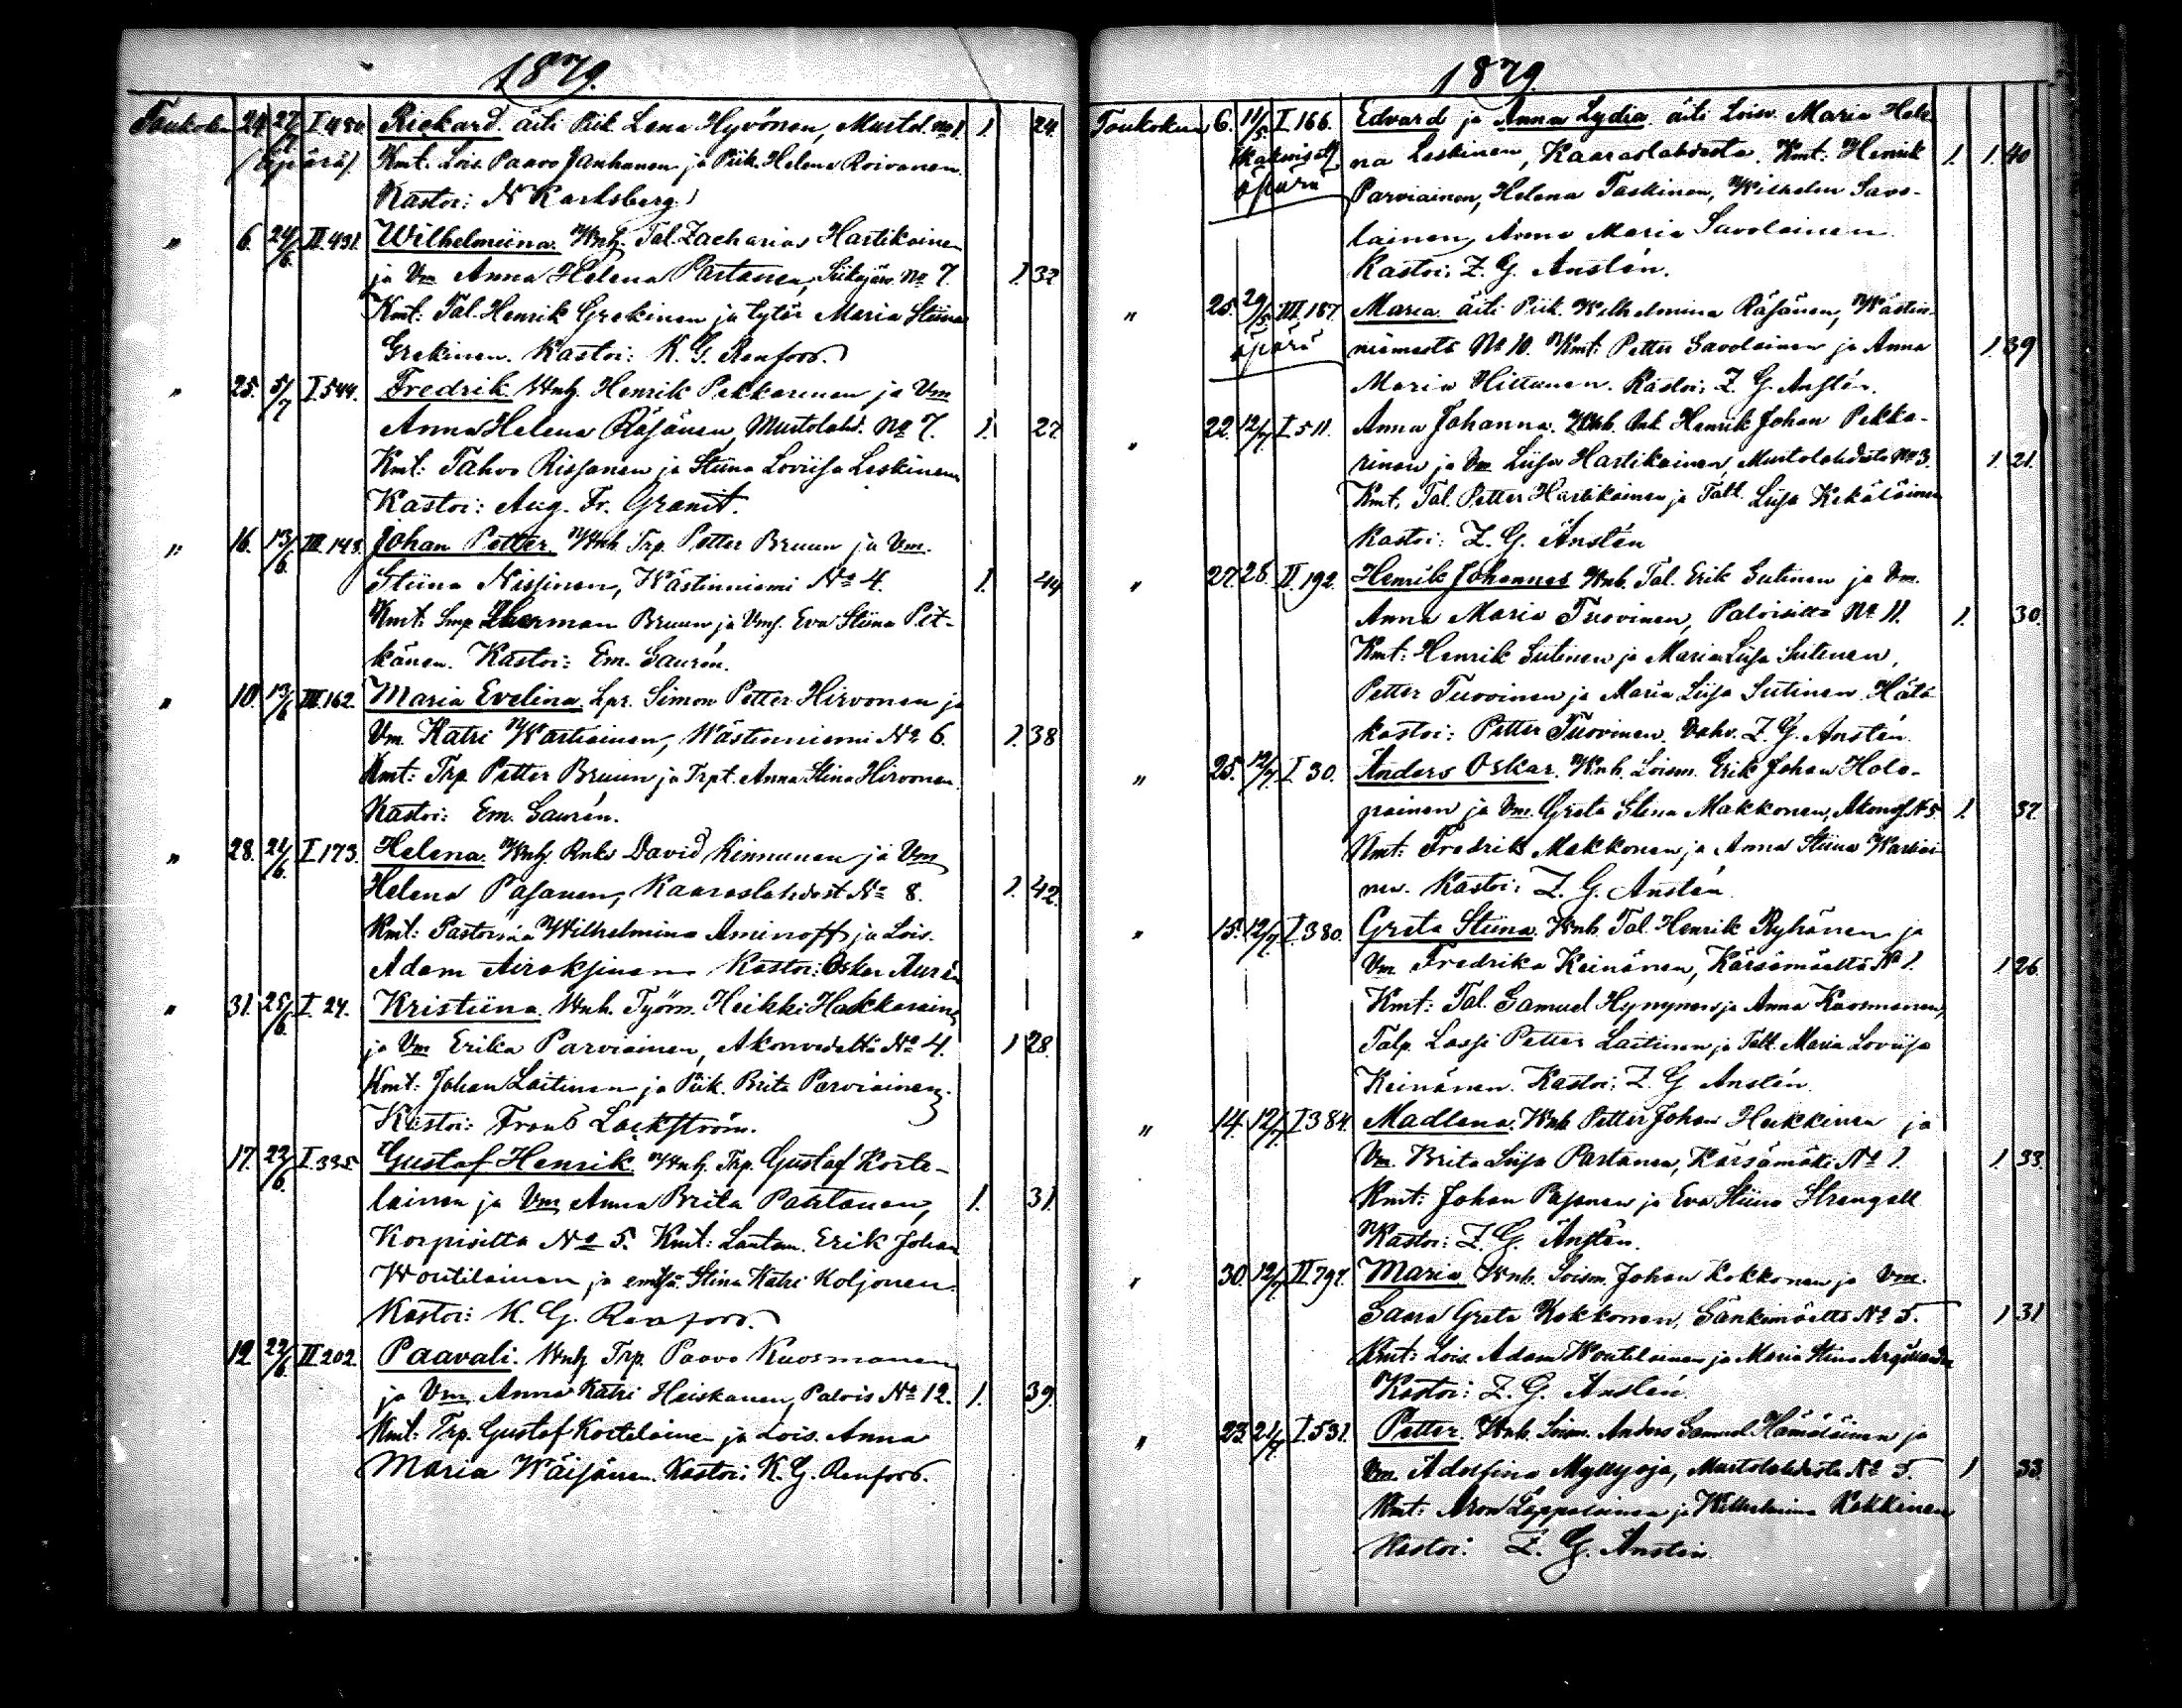 1879.
Toukokuu 24. 27/5 I 480. Rickard. äiti Piik Lena Hyvönen, Mustol. No 1. 1. 24.
(Äpärä). Kmt. Lois. Paavo Janhunen ja Piik. Helena Roivanen.
Kastoi: N Karlsberg.
" 6. 24/6. II 491. Wilhelmiina. Wnh. Tal. Zacharias Hartikainen
ja Vm Anna Helena Partanen, Siikajärv. No 7. 1. 32
Kmt: Tal. Henrik Grekinen ja tytär Maria Stiina
Grekinen. Kastoi: K. G. Renfors.
" 25. 5/7 I 544. Fredrik. Wnh. Henrik Pekkarinen ja Vm
Anna Helena Räsänen, Mustolahd. No 7. 1. 27.
Kmt: Tahvo Rissanen ja Stiina Loviisa Leskinen
Kastoi: Aug. Fr. Granit.
" 16. 13/6. III 148. Johan Petter. Wnh Trp. Petter Bruun ja Vm.
Stiina Nissinen, Wästinniemi No 4. 1. 44
Kmt: Smp Herman Bruun ja Vmf. Eva Stiina Pit-
känen. Kastoi: Em. Saurén.
" 10. 13/6 III 162. Maria Evelina. Lpr. Simon Petter Hirvonen ja
Vm. Katri Wartiainen, Wästinniemi No 6. 1. 38
Kmt: Trp. Petter Bruun ja Trpt. Anna Stina Hirvonen.
Kastoi: Em. Saurén.
" 28. 21/6. I 173. Helena. Wnh. Rnk David Kinnunen ja Vm
Helena Pasanen, Kaaraslahdest No 8. 1. 42.
Kmt: Pastorska Wilhelmina Aminoff ja Lois.
Adam Airaksinen Kastoi: Oskar Aurén
" 31. 25/6. I 24. Kristiina. Wnh. Työm. Heikki Hakkarainen
ja Vm Erika Parviainen, Akonvedeltä No 4. 1 28.
Kmt: Johan Laitinen ja Piik. Brita Parviainen.
Kastoi: Frans Lackström.
17. 23/6. I 335 Gustaf Henrik. Wnh. Trp. Gustaf Korte-
lainen ja Vm Anna Brita Partanen, 1. 31.
Korpisilta No 5. Kmt: Lautam. Erik Johan
Woutilainen ja emsä. Stina Katri Koljonen.
Kastoi: K. G. Renfors.
12 22/6. II 202. Paavali. Wnh Trp. Paavo Kuosmanen
ja Vm. Anna Katri Heiskanen, Palois No 12. 1. 39.
Kmt: Trp. Gustaf Kortelainen ja Lois. Anna
Maria Wäisänen. Kastoi: K. G. Renfors.
1879.
Toukokuu 6. 11/5. I 166. Edvard ja Anna Lydia. äiti Loisv. Maria Hele-
(Kaksoiset) na Leskinen, Kaaraslahdesta. Kmt: Henrik 1. 1. 40
äpärä Parviainen, Helena Taskinen, Wilhelm Savo-
lainen, Anna Maria Savolainen.
Kastoi: Z. G. Anstén.
" 25. 29/5. III. 187. Maria. äiti Piik. Wilhelmina Räsänen, Wästin-
äpärä niemestä No 10. Kmt: Petter Savolainen ja Anna 1. 39
Maria Hiltunen. Kastoi: Z. G. Anstén.
" 22. 12/7. I 511. Anna Johanna. Wnh. Henrik Johan Pekka-
rinen ja Vm Liisa Hartikainen, Mustolahdesta No 3. 1. 21.
Kmt. Tal. Petter Hartikainen ja Talt. Liisa Kekäläinen
Kastoi: Z. G. Anstén
" 27. 28. II. 192. Henrik Johannes. Wnh. Tal. Erik Sutinen ja Vm.
Anna Maria Tuovinen, Paloisilta No 11. 1. 30.
Kmt: Henrik Sutinen ja Maria Liisa Sutinen,
Petter Tuovinen ja Maria Liisa Sutinen. Hätä
kastoi: Petter Tuovinen. Vahv. Z. G. Anstén.
" 25. 12/7. I 30. Anders Oskar. Wnh. Loism. Erik Johan Holo-
painen ja Vm. Greta Stina Makkonen, Akonv. No 5. 1. 32.
Kmt: Fredrik Makkonen ja Anna Stiina Wartiai-
nen. Kastoi: Z. G. Anstén.
" 15. 12/7. I 380. Greta Stiina. Wnh. Tal. Henrik Ryhänen ja
Vm Fredrika Keinänen, Kärsämäeltä No 1. 1 26.
Kmt: Tal. Samuel Hynynen ja Anna Kuosmanen,
Talp. Lassi Petter Laitinen ja Talt. Maria Loviisa
Keinänen. Kastoi: Z. G Anstén.
" 14. 12/7. I 384. Madlena. Wnh Petter Johan Heikkinen ja
Vm. Brita Liisa Partanen, Kärsämäki No 1. 1. 33.
Kmt: Johan Pasanen ja Eva Stiina Strengell
Kastoi: Z. G. Anstén.
" 30. 12/7. II 797. Maria. Wnh. Loism. Johan Kokkonen ja Vm.
Saara Greta Kokkonen, Sänkimäeltä No 5. 1 31
Kmt: Lois. Adam Woutilainen ja Maria Stina
Kastoi: Z. G. Anstén.
" 23. 21/7. I. 531. Petter. Wnh. Loism. Anders Samuel Hämäläinen ja
Vm. Adolfina Myllyoja, Mustolahdesta No 5. 1 33.
Kmt: Aron Lappalainen ja Wilhelmina Kokkinen
Kastoi: Z. G. Anstén.